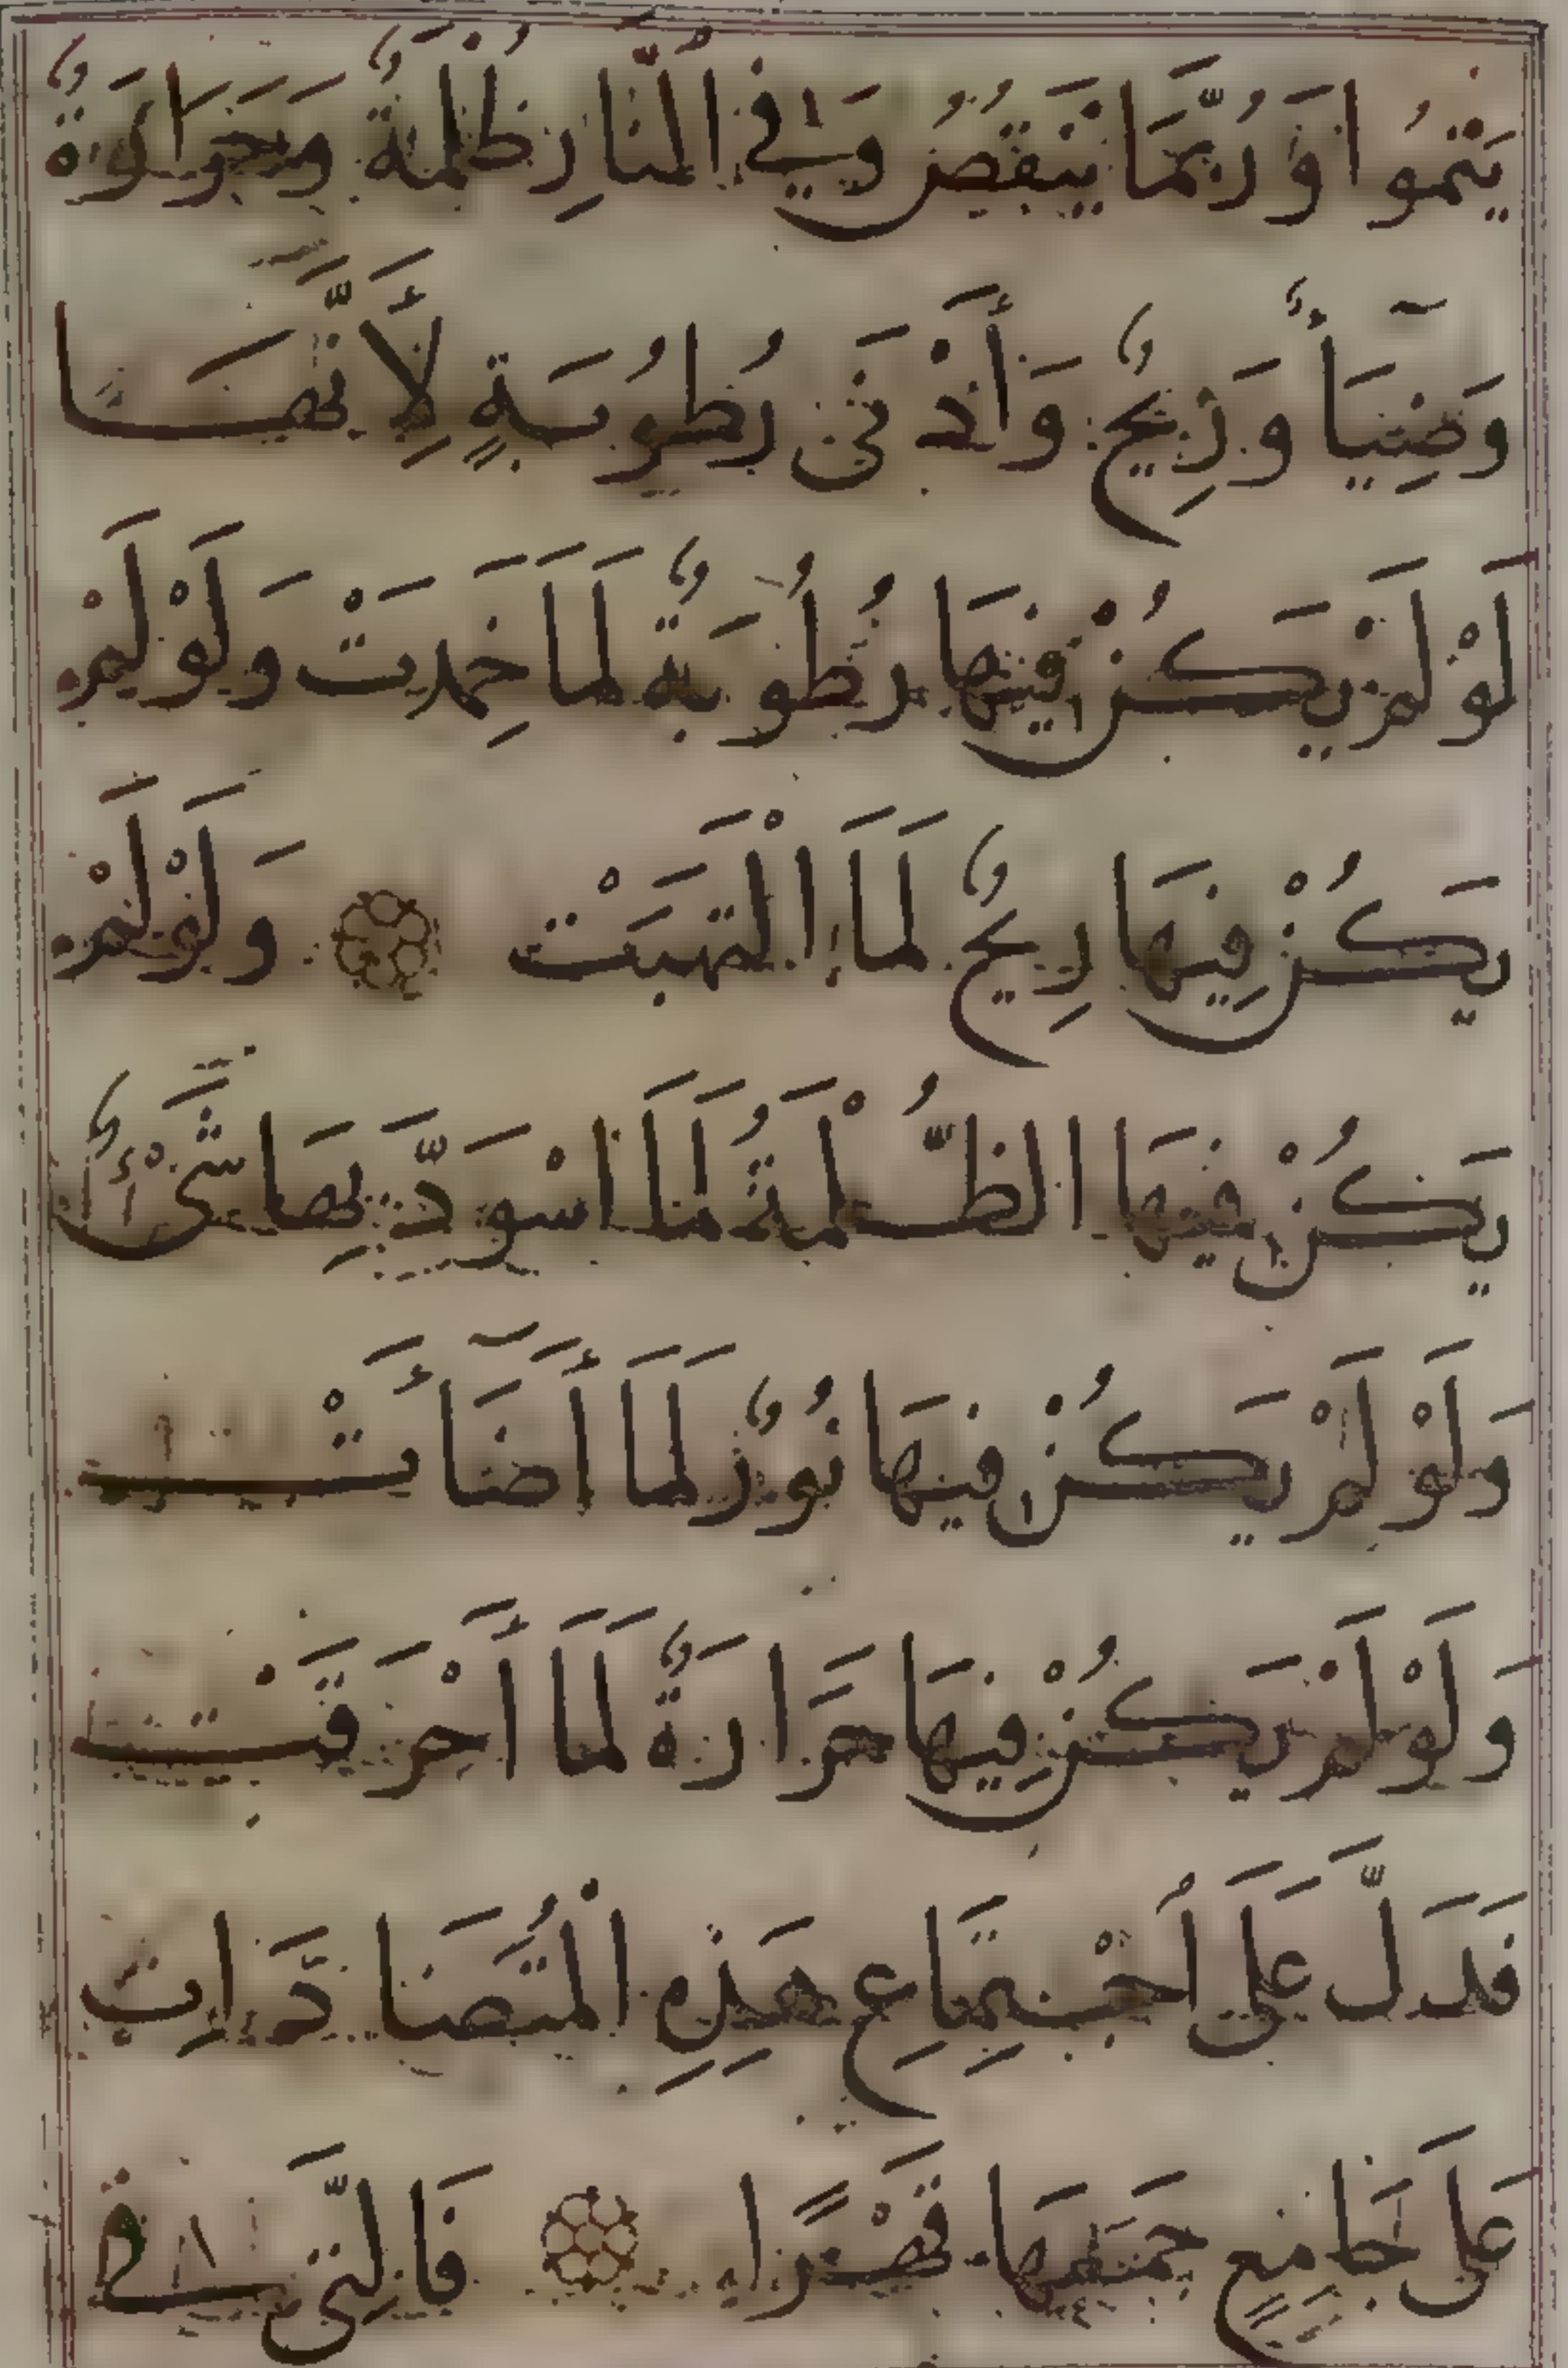 يَنْمُوا وَرُبَّمَا يَنْقُصُ وَفِي اُلنَّارِ ظُلْمَةٌ وَحَرَارَةٌ
وَضِيَآءٌ وَرِيحٌ وَأَدْنَى رُطُوبَةٍ لِأَنَّهَا
لَوْ لَمْ يَكُنْ فِيهَا رُطُوبَةٌ لَمَا خَمِدَتْ وَلَوْ لَمْ
يَكُنْ فِيهَا رِيحٌ لَمَا اِلْتَهَبَتْ وَلَوْ لَمْ
يَكُنْ فِيهَا الظُّلْمَةُ لَمَا اسْوَدَّ بِهَا شَيْءٌ
وَلَوْ لَمْ يَكُنْ فِيهَا نُورٌ لَمَا أَضَآءَتْ
وَلَوْ لَمْ يَكُنْ فِيهَا حَرَارَةٌ لَمَا أَحْرَقَتْ
فَدَلَّ عَلَى اُجْتِمَاعِ هَذِهِ اْلمُتَضَادَّاتِ
عَلَى جَامِعٍ جَمَعَهَا قَهْرًا فَالَّتِي فِي